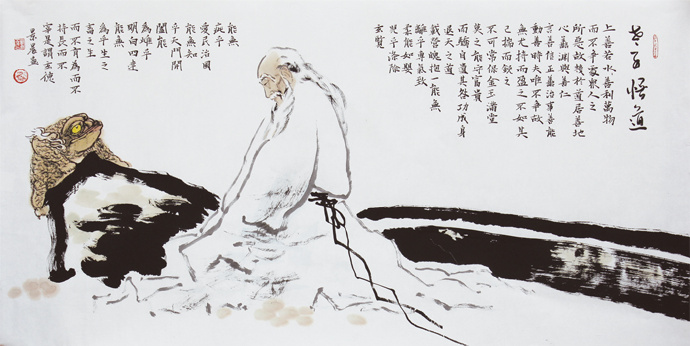 老子悟道
上善若水善利萬物
而不爭處衆人之
所惡故幾於道居善地
心善淵與善仁
言善信正善治軍善能
動善時夫唯不爭故
無尤持而盈之不如其
已揣而銳之
不可常保金玉滿堂
莫之能守富貴
而驕自遺其咎功成身
退天之道
載營魄抱一能無
離乎專氣致
柔能如嬰
兒乎滌除
玄覽
能無
疵乎
愛民治國
能無知
乎天門開
闔能
為雌乎
明白四達
能無
為乎生之
畜之生
而不有為而不
恃長而不
宰是謂玄德